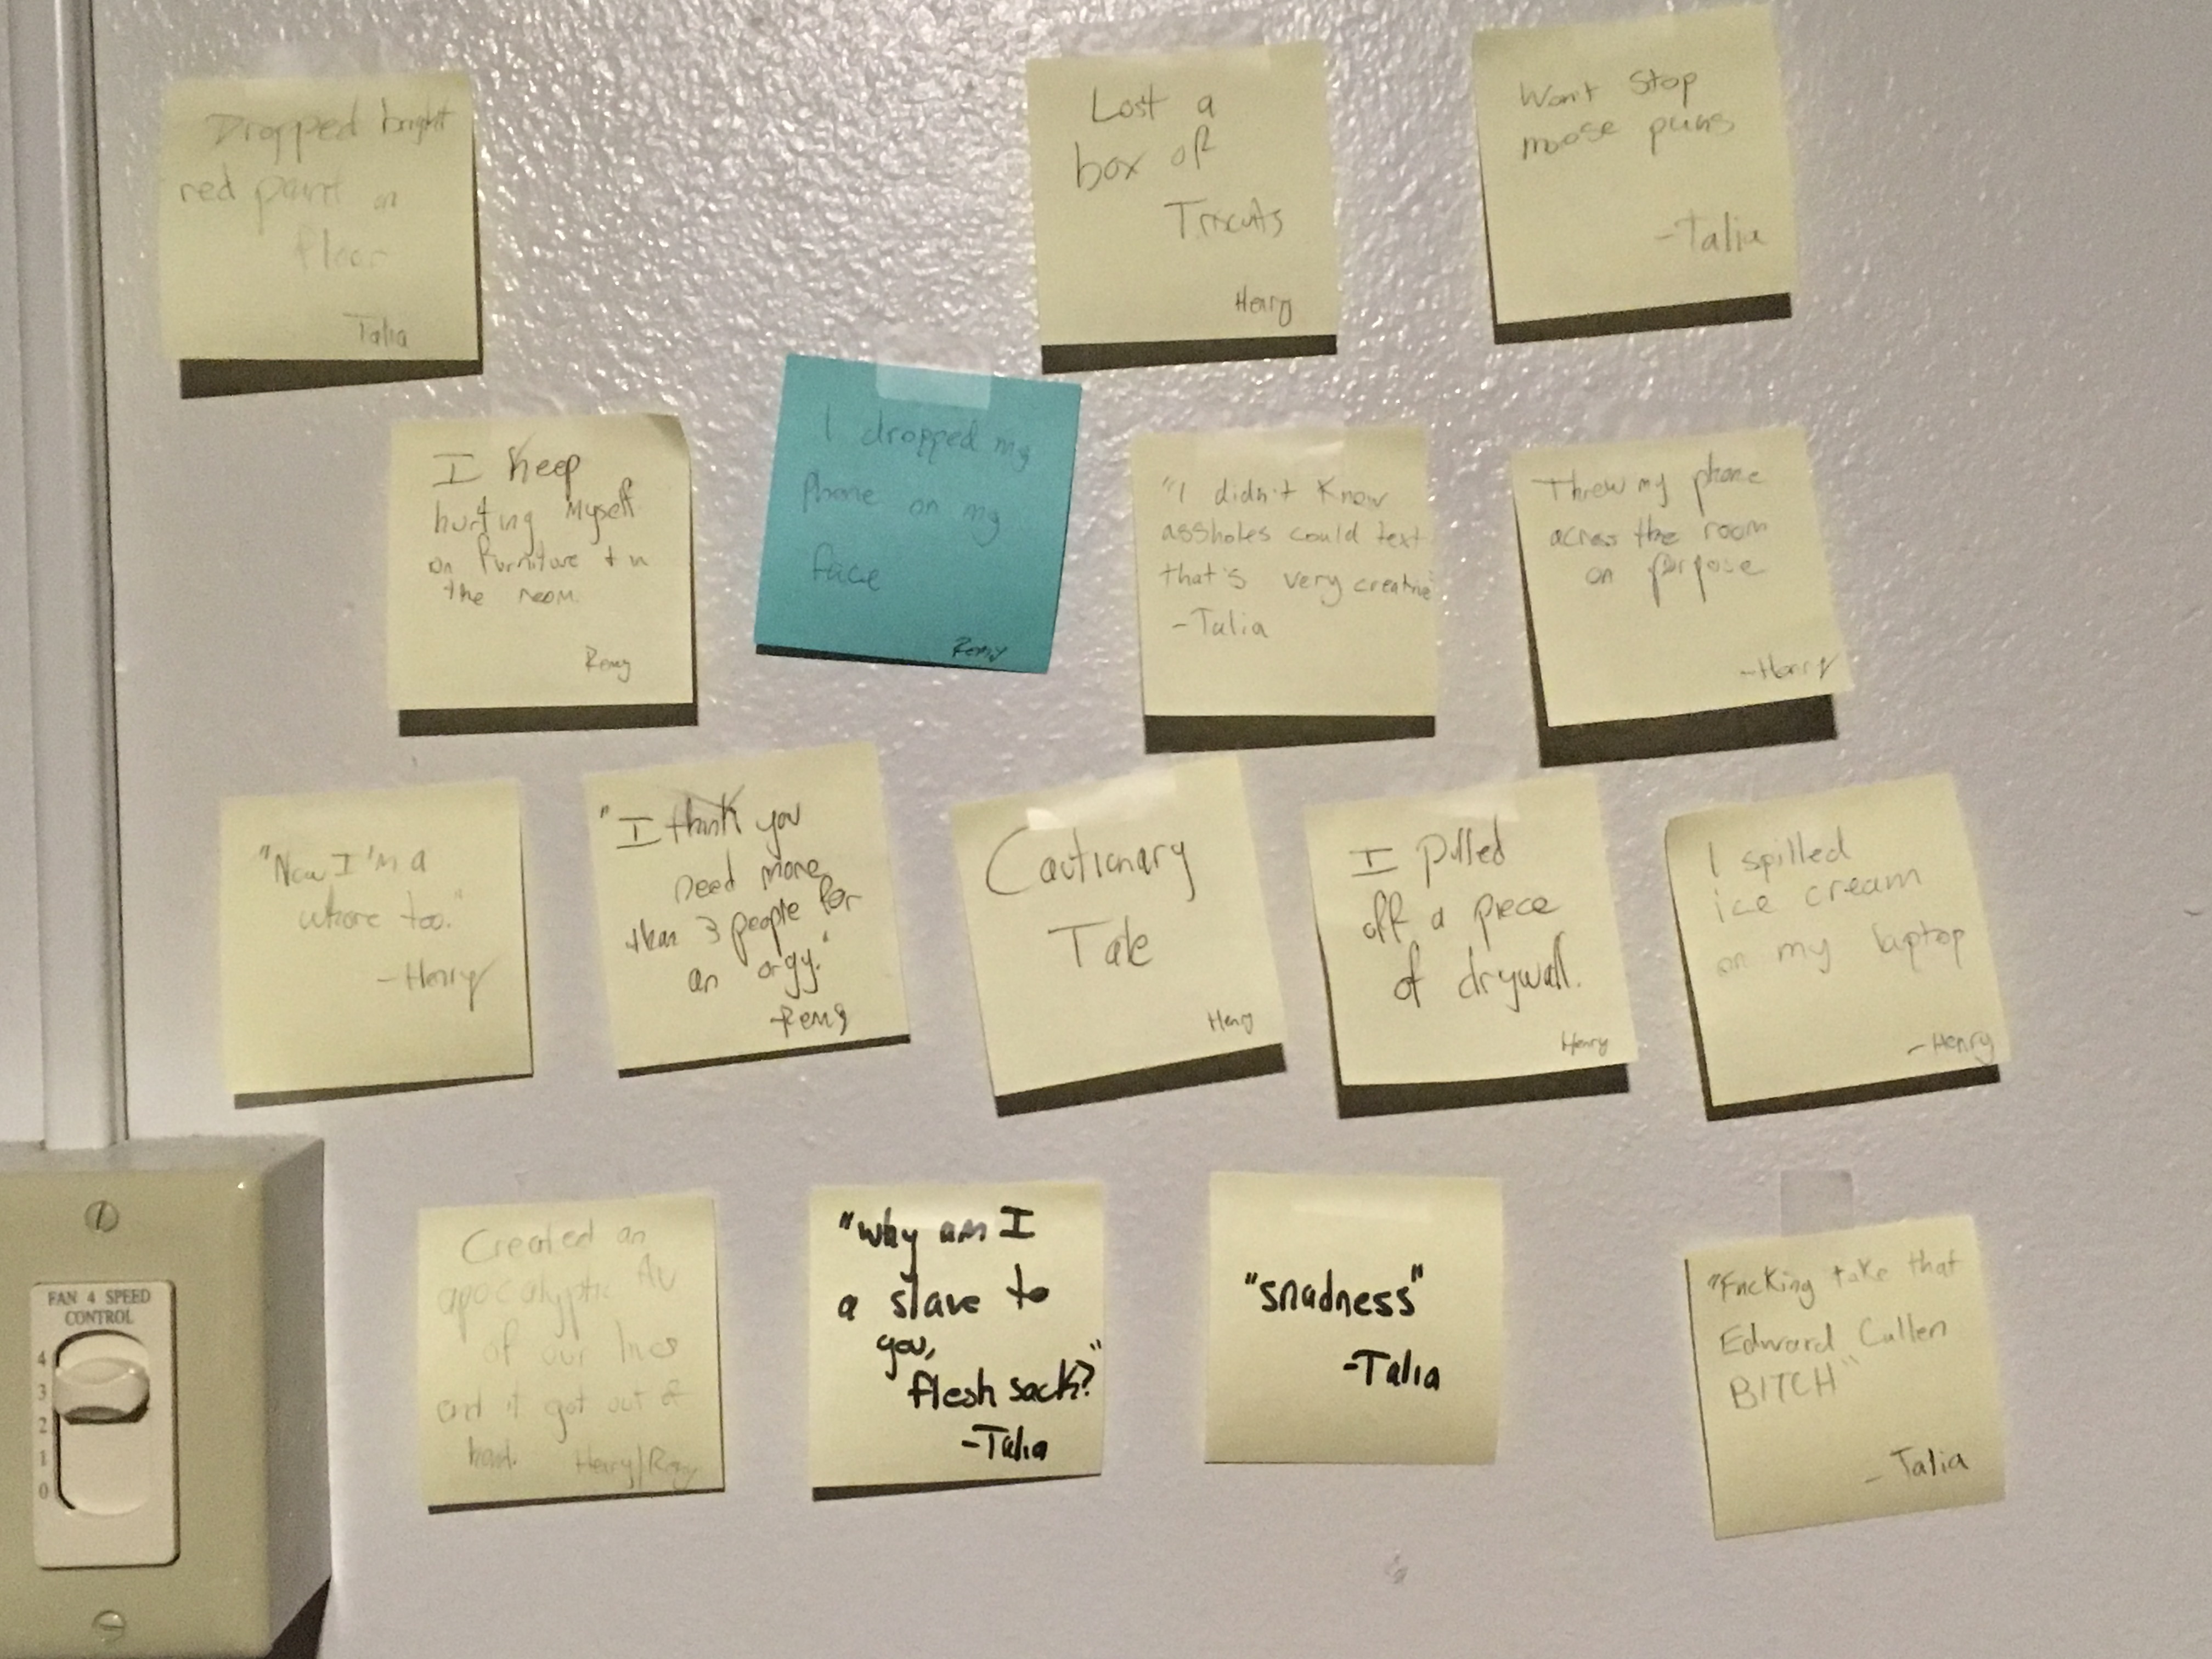 Dropped bright
red paint on
floor
Talia
Lost a
box of
Tricuts
Henry
Won't stop
moose puns
-Talia
I keep
hurting myself
on furniture + in
the room.
Remy
I dropped my
phone on my
face
Remy
"I didn't know
assholes could text
that's very creative"
-Talia
Threw my phone
across the room
on purpose
-Henry
"Now I'm a
whore too."
-Henry
"I think you
need more
than 3 people for
an orgy."
-Remy
Cautionary
Tale
Henry
I pulled
off a piece
of drywall.
Henry
I spilled
ice cream
on my laptop
-Henry
Created an
apocalyptic AU
of our lives
and it got out of
hand. Henry/Remy
"why am I
a slave to
you,
flesh sack?"
-Talia
"snadness"
-Talia
"Fucking take that
Edward Cullen
BITCH"
- Talia
FAN 4 SPEED
CONTROL
4
3
2
1
0